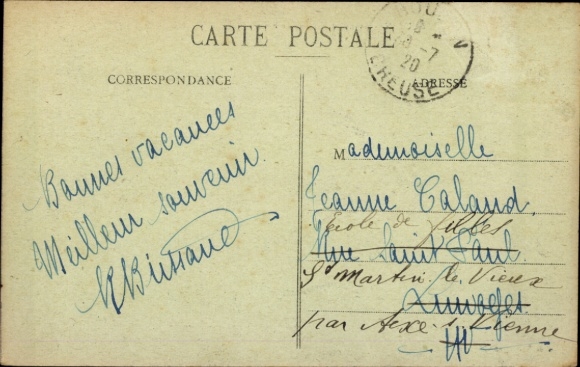 CARTE POSTALE
CORRESPONDANCE
ADRESSE
CREUSE
20
Bonnes vacances
Meilleur souvenir
Mademoiselle
Jeanne Caland
École de filles
Rue Saint Paul
St Martin le Vieux
Limoges
par Aixe s. Vienne
HV